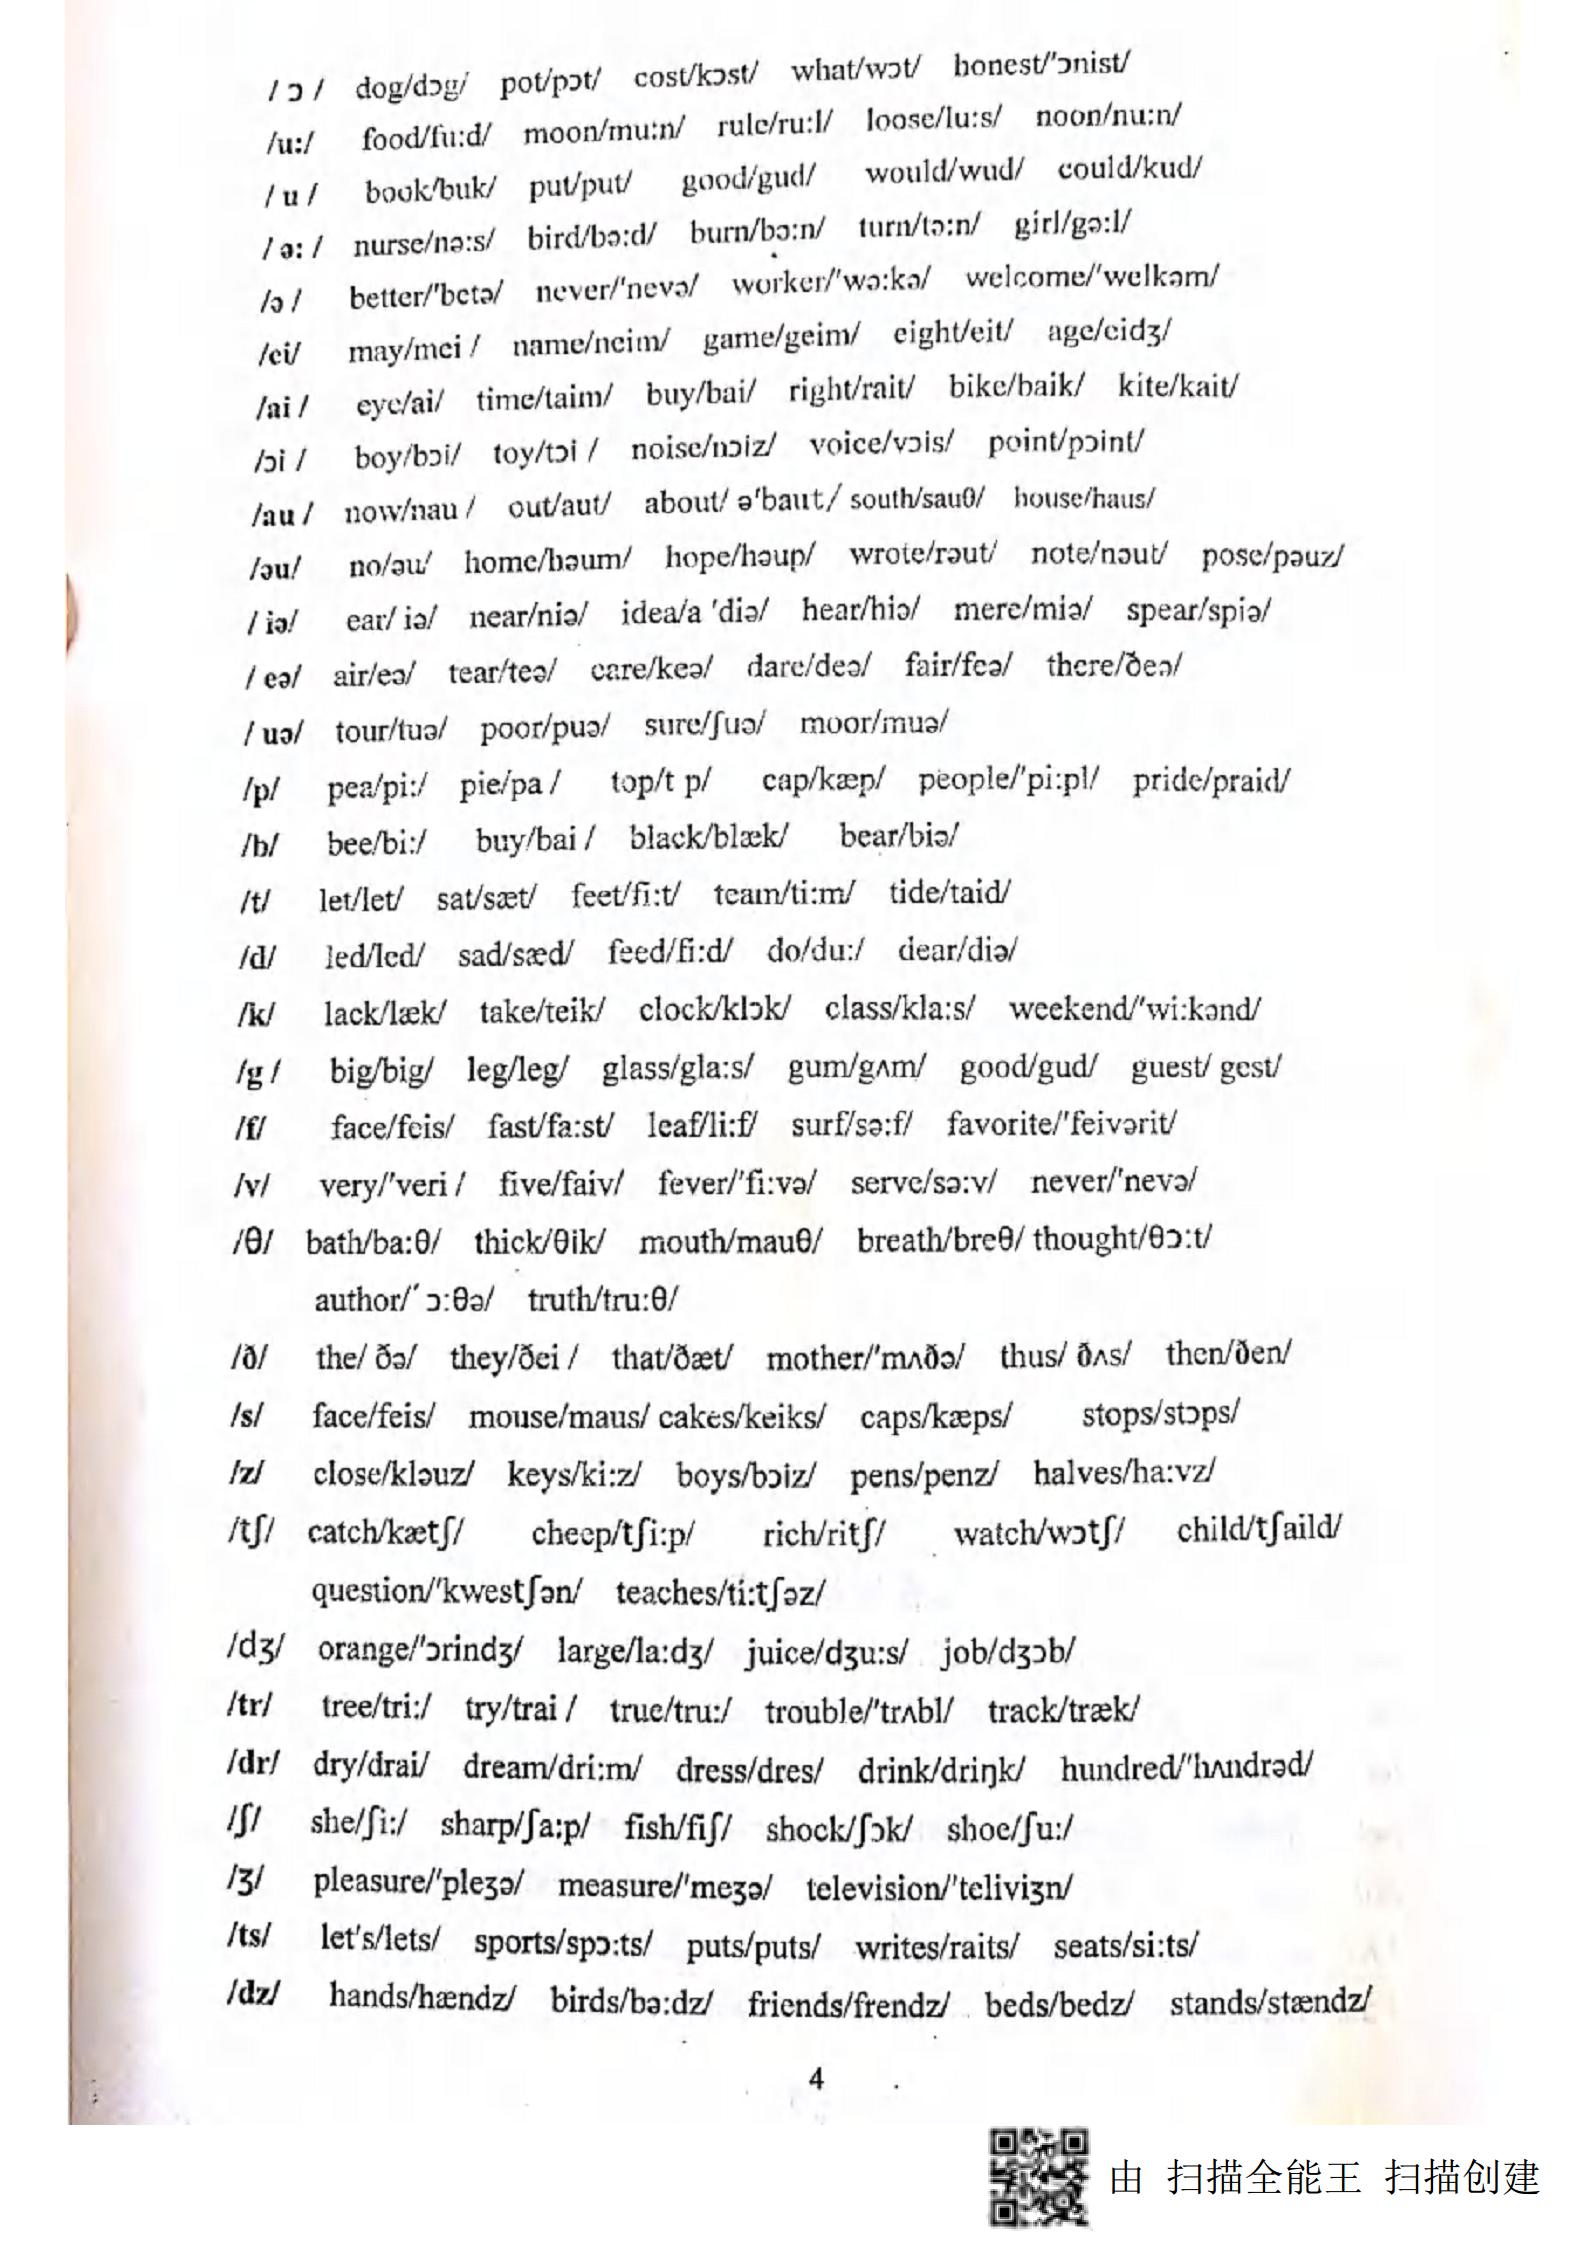 / ɔ / dog/dɔg/ pot/pɔt/ cost/kɔst/ what/wɔt/ honest/'ɔnist/
/u:/ food/fu:d/ moon/mu:n/ rule/ru:l/ loose/lu:s/ noon/nu:n/
/ u / book/buk/ put/put/ good/gud/ would/wud/ could/kud/
/ ə: / nurse/nə:s/ bird/bə:d/ burn/bə:n/ turn/tə:n/ girl/gə:l/
/ə / better/'betə/ never/'nevə/ worker/'wə:kə/ welcome/'welkəm/
/ei/ may/mei / name/neim/ game/geim/ eight/eit/ age/eidʒ/
/ai / eye/ai/ time/taim/ buy/bai/ right/rait/ bike/baik/ kite/kait/
/ɔi / boy/bɔi/ toy/tɔi / noise/nɔiz/ voice/vɔis/ point/pɔint/
/au / now/nau / out/aut/ about/ ə'baut/ south/sauθ/ house/haus/
/əu/ no/əu/ home/həum/ hope/həup/ wrote/rəut/ note/nəut/ pose/pəuz/
/ iə/ ear/ iə/ near/niə/ idea/a 'diə/ hear/hiə/ mere/miə/ spear/spiə/
/ eə/ air/eə/ tear/teə/ care/keə/ dare/deə/ fair/feə/ there/ðeə/
/ uə/ tour/tuə/ poor/puə/ sure/ʃuə/ moor/muə/
/p/ pea/pi:/ pie/pa / top/t p/ cap/kæp/ people/'pi:pl/ pride/praid/
/b/ bee/bi:/ buy/bai / black/blæk/ bear/biə/
/t/ let/let/ sat/sæt/ feet/fi:t/ team/ti:m/ tide/taid/
/d/ led/led/ sad/sæd/ feed/fi:d/ do/du:/ dear/diə/
/k/ lack/læk/ take/teik/ clock/klɔk/ class/kla:s/ weekend/'wi:kənd/
/g / big/big/ leg/leg/ glass/gla:s/ gum/gʌm/ good/gud/ guest/ gest/
/f/ face/feis/ fast/fa:st/ leaf/li:f/ surf/sə:f/ favorite/'feivərit/
/v/ very/'veri / five/faiv/ fever/'fi:və/ serve/sə:v/ never/'nevə/
/θ/ bath/ba:θ/ thick/θik/ mouth/mauθ/ breath/breθ/ thought/θɔ:t/
author/' ɔ:θə/ truth/tru:θ/
/ð/ the/ ðə/ they/ðei / that/ðæt/ mother/'mʌðə/ thus/ ðʌs/ then/ðen/
/s/ face/feis/ mouse/maus/ cakes/keiks/ caps/kæps/ stops/stɔps/
/z/ close/kləuz/ keys/ki:z/ boys/bɔiz/ pens/penz/ halves/ha:vz/
/tʃ/ catch/kætʃ/ cheep/tʃi:p/ rich/ritʃ/ watch/wɔtʃ/ child/tʃaild/
question/'kwestʃən/ teaches/ti:tʃəz/
/dʒ/ orange/'ɔrindʒ/ large/la:dʒ/ juice/dʒu:s/ job/dʒɔb/
/tr/ tree/tri:/ try/trai / true/tru:/ trouble/'trʌbl/ track/træk/
/dr/ dry/drai/ dream/dri:m/ dress/dres/ drink/driŋk/ hundred/'hʌndrəd/
/ʃ/ she/ʃi:/ sharp/ʃa:p/ fish/fiʃ/ shock/ʃɔk/ shoe/ʃu:/
/ʒ/ pleasure/'pleʒə/ measure/'meʒə/ television/'teliviʒn/
/ts/ let's/lets/ sports/spɔ:ts/ puts/puts/ writes/raits/ seats/si:ts/
/dz/ hands/hændz/ birds/bə:dz/ friends/frendz/ beds/bedz/ stands/stændz/
4
由 扫描全能王 扫描创建